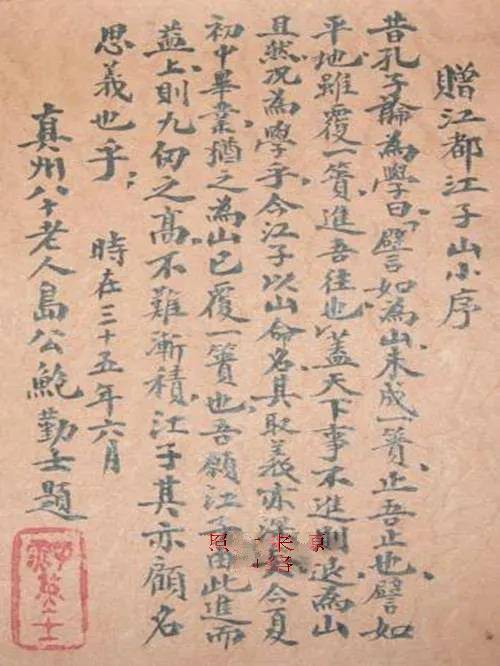 贈江都江子山小序
昔孔子論為學曰、「譬如為山、未成一簣、止吾止也、譬如
平地、雖覆一簣、進吾往也、蓋天下事不進則退、為山
且然、況為學乎、今江子以山命名、其取義亦深、今夏
初中畢業、猶之為山已覆一簣也、吾願江子由此進而
益上、則九仞之高、不難漸積、江子其亦顧名
思義也乎、 時在三十五年六月
真州八十老人島公鮑勤士題